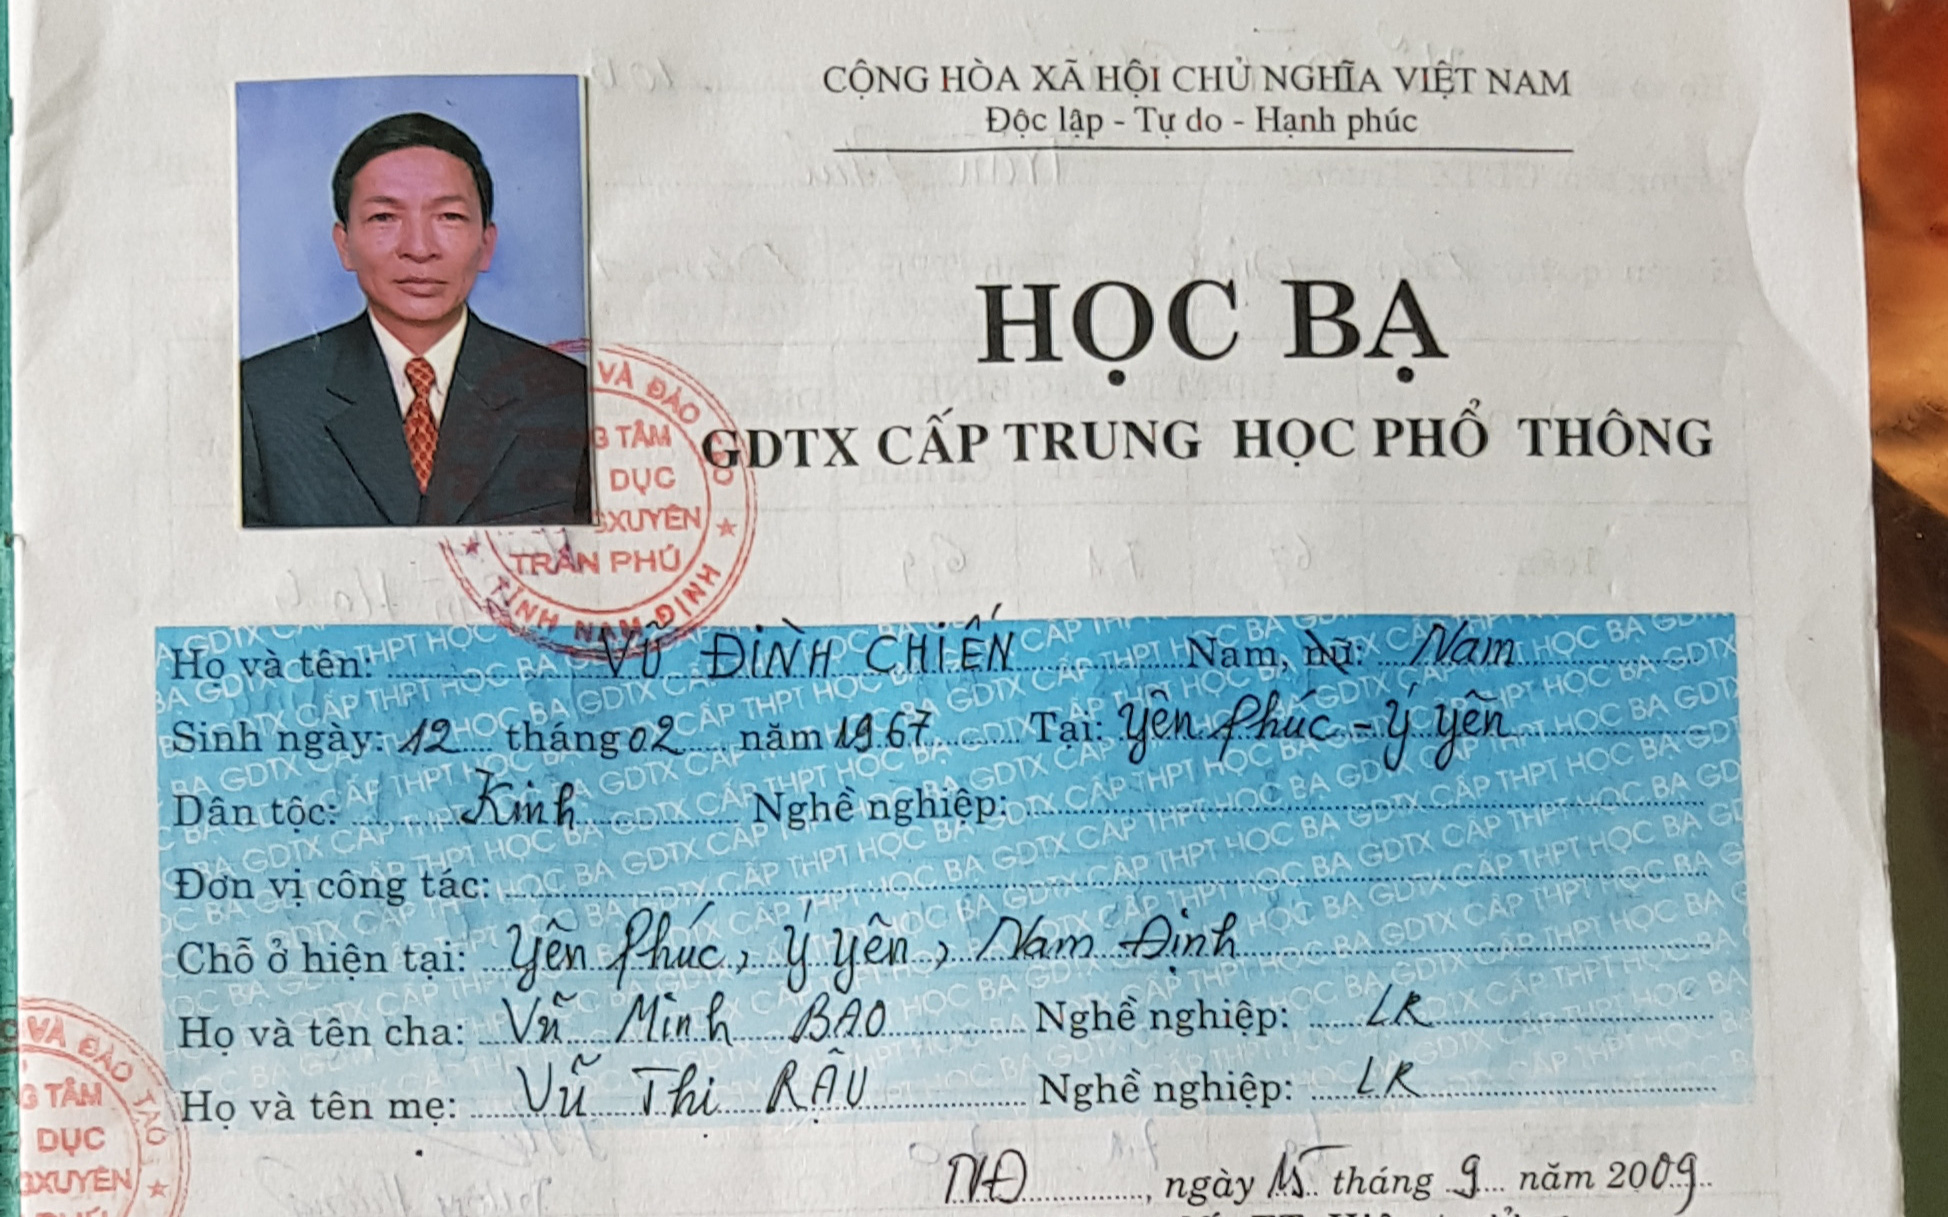 CỘNG HÒA XÃ HỘI CHỦ NGHĨA VIỆT NAM
Độc lập - Tự do - Hạnh phúc
HỌC BẠ
GDTX CẤP TRUNG HỌC PHỔ THÔNG
VÀ ĐÀO TẠO
G TÂM
DỤC
GXUYÊN
TRẦN PHÚ
TỈNH NAM ĐỊNH
Họ và tên: VŨ ĐÌNH CHIẾN Nam, nữ: Nam
Sinh ngày: 12 tháng 02 năm 1967 Tại: Yên Phúc - Ý Yên
Dân tộc: Kinh Nghề nghiệp:
Đơn vị công tác:
Chỗ ở hiện tại: Yên Phúc, Ý Yên, Nam Định
Họ và tên cha: Vũ Minh BAO Nghề nghiệp: LR
Họ và tên mẹ: Vũ Thị RẬU Nghề nghiệp: LR
VÀ ĐÀO TẠO
G TÂM
DỤC
GXUYÊN
NĐ, ngày 15 tháng 9 năm 2009